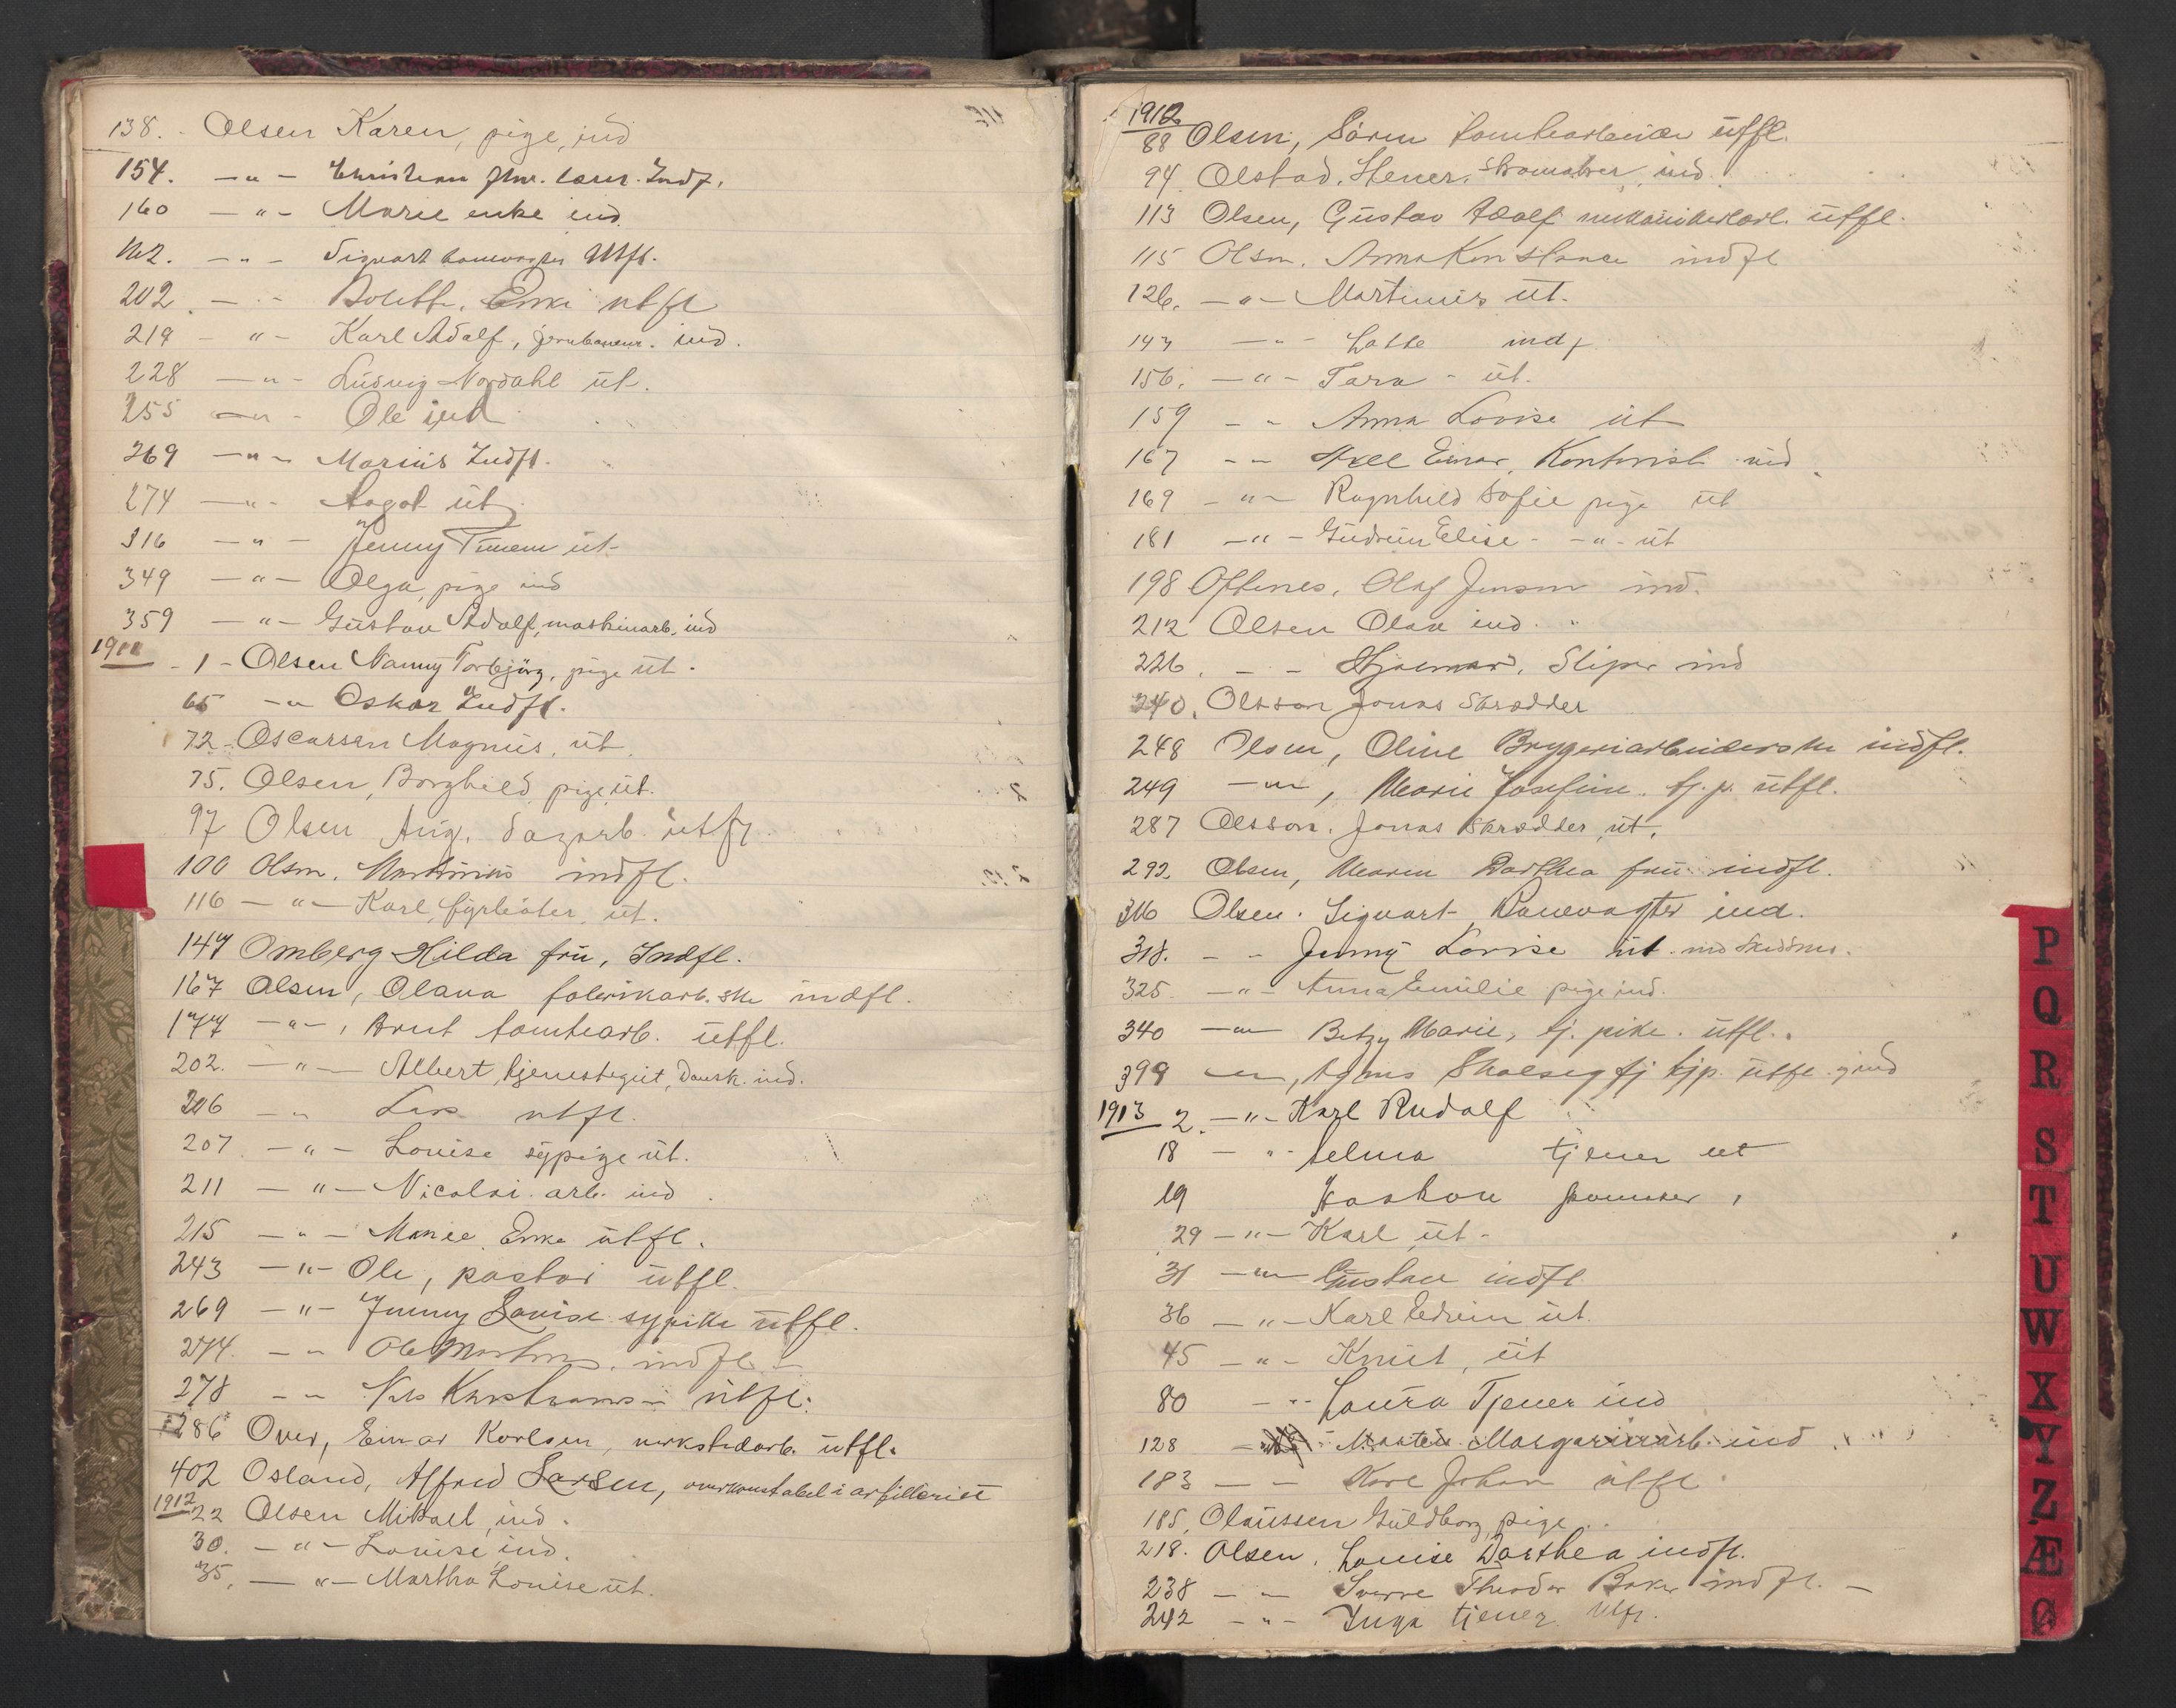 138. Olsen Karen, pige, ind
154. — " — Christian
160 — " — Marie enke ind
— " — Sigvart banevogter Utfl.
202 — " — Enke utfl
219 — " — Karl Adolf, ind.
228 — " — Ludvig Nordahl üt.
255 — " — Ole ind
269 — " — Marius Indfl.
274 — " — Aagot üt
316 — " — Jenny üt
349 — " — Olga, pige ind
359 — " — Güstav Adolf, maskinarb. ind
1911
- 1 - Olsen Nanny Torbjörg, pige üt.
65 — " Oskar Indfl.
72 - Oscarsen Magnüs, üt.
75. Olsen, Borghild pige üt.
97 Olsen Aüg. dagarb. ütfl
100 Olsen, Martinius indfl.
116 — " — Karl, fyrböter, üt.
147 Omberg Hilda frü, Indfl.
167 Olsen, Olava fabrikarb.ske indfl.
177 — " —, Arnt tomtearb. ütfl.
202. — " — Albert, tjenestegüt, Dansk. ind.
206 — " Lars utfl.
207 — " — Lovise sypige üt.
211 — " — Nicolai arb. ind.
215 — " — Marie Enke ütfl.
243 — " — Ole, pastor ütfl.
269 — " — Jenny Lovise sypike ütfl.
274. — " Ole indfl.
278 — " Nils Kristiansen ütfl.
286 Over, Einar Karlsen, verkstedarb. ütfl.
402 Osland, Alfred Larsen, overkonstabel i artilleriet
1912
22 Olsen Mikael, ind.
30. — " — Lovise, ind.
35. — " — Martha Lovise üt.
1912
88 Olsen, Sören tomtearbeider ütfl.
94. Olstad, Stener, Skomaker, ind.
113 Olsen, Güstav Adolf ütfl.
115 Olsen, Anna Konstance indfl
126. — " — Martinius üt.
147 — " — Lotte indf.
156. — " — Tara - üt.
159 — " Anna Lovise üt
167 — " Axel Einar, Kontorist ind.
169 — " — Ragnhild Sofie pige üt
181 — " — Güdrün Elise - — " — üt
198 Oftenes, Olaf Jensen ind.
212 Olsen Olav ind.
226. — — Hjalmar, Sliper ind
240. Olsson Jonas Skrædder
248 Olsen, Oline Bryggeriarbeiderske indfl.
249 — " —, Marie Josefine tj.p. ütfl.
287 Olsson, Jonas Skrædder üt.
292. Olsen, Maren Dorthea frü indfl.
316 Olsen. Sigvart Banevogter ind.
318. — " Jenny Lovise üt.
325. — " — Anna Emilie pige ind.
340 — " — Betzy Marie, tj. pike. ütfl.
399 — " —, Agnes
1913
2. — " — Karl Rudolf
18 — " — Selma tjener ut
19 Haakon
29 — " — Karl üt.
31 — " — Güstav indfl
36 — " — Karl Edvin üt.
45 — " — Knüt, üt
80 — " Laura Tjener ind
128 — " Margarinarb. ind
183 — — Kare Johan ütfl.
185. Olaüssen Güldborg pige
218. Olsen, Louise Dorthea indfl.
238 — " Sverre Theodor Baker indfl.
242 — " — Inga tjener Utfl.
P
Q
R
S
T
U
W
X
Y
Z
Æ
Ø